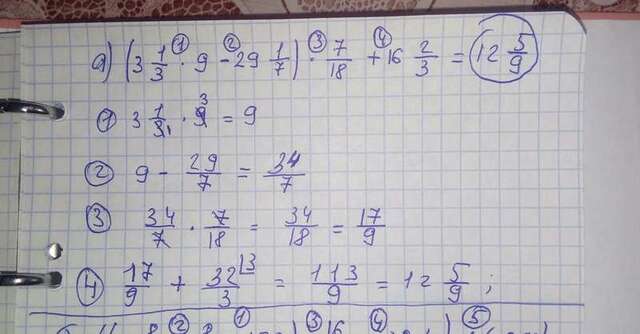 а) (3 1/3 ① · 9 ② - 29 1/7) ③ · 7/18 ④ + 16 2/3 = 12 5/9
① 3 1/3 1 · 9 3 = 9
② 9 - 29/7 = 34/7
③ 34/7 · 7/18 = 34/18 = 17/9
④ 17/9 + 32/3 |3 = 113/9 = 12 5/9 ;